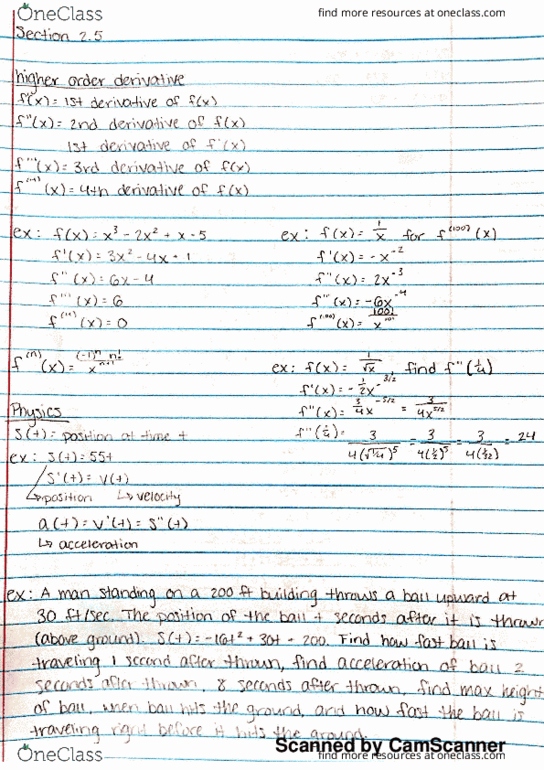 OneClass
find more resources at oneclass.com
Section 2.5
higher order derivative
f'(x) = 1st derivative of f(x)
f''(x) = 2nd derivative of f(x)
1st derivative of f'(x)
f'''(x) = 3rd derivative of f(x)
f⁽⁴⁾(x) = 4th derivative of f(x)
ex: f(x) = x³ - 2x² + x - 5
f'(x) = 3x² - 4x + 1
f''(x) = 6x - 4
f'''(x) = 6
f⁽⁴⁾(x) = 0
ex: f(x) = 1/x for f⁽¹⁰⁰⁾(x)
f'(x) = -x⁻²
f''(x) = 2x⁻³
f'''(x) = -6x⁻⁴
f⁽¹⁰⁰⁾(x) = 100!/x¹⁰¹
f⁽ⁿ⁾(x) = (-1)ⁿ n!/xⁿ⁺¹
ex: f(x) = 1/√x, find f''(1/4)
f'(x) = -1/2x⁻³/²
f''(x) = 3/4x⁻⁵/² = 3/4x⁵/²
f''(1/4) = 3/4(√1/4)⁵ = 3/4(1/2)⁵ = 3/4(1/32) = 24
Physics
S(t) = position at time t
ex: S(t) = 55t
S'(t) = V(t)
↳ position ↳ velocity
a(t) = V'(t) = S''(t)
↳ acceleration
ex: A man standing on a 200 ft building throws a ball upward at
30 ft/sec. The position of the ball t seconds after it is thrown
(above ground). S(t) = -16t² + 30t + 200. Find how fast ball is
traveling 1 second after thrown, find acceleration of ball 2
seconds after thrown, 8 seconds after thrown, find max height
of ball, when ball hits the ground, and how fast the ball is
traveling right before it hits the ground.
Scanned by CamScanner
OneClass
find more resources at oneclass.com